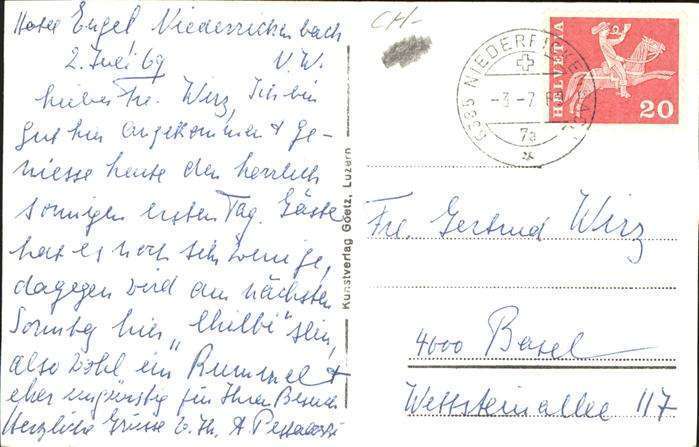 Hotel Engel Niederrickenbach
2. Juli 69 N.W.
Liebes Frl. Wirz, Ich bin
gut hier angekommen & ge-
niesse heute den herrlich
sonnigen ersten Tag. Gäste
hat es noch sehr wenige,
dagegen wird am nächsten
Sonntag hier "Chilbi" sein,
also wohl ein Rummel &
eher ungünstig für Ihren Besuch
Herzliche Grüsse v. Ihr. A Pestalozzi
Kunstverlag Goetz, Luzern
CH-
6385 NIEDERRICKENBACH
-3.-7. 69
7a
HELVETIA
20
Frl. Gertrud Wirz
4000 Basel
Wettsteinallee 117